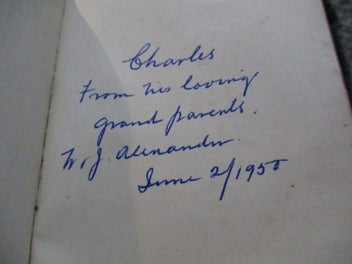 Charles
From his loving
grand parents.
W. J. Alexander.
June 2/1955